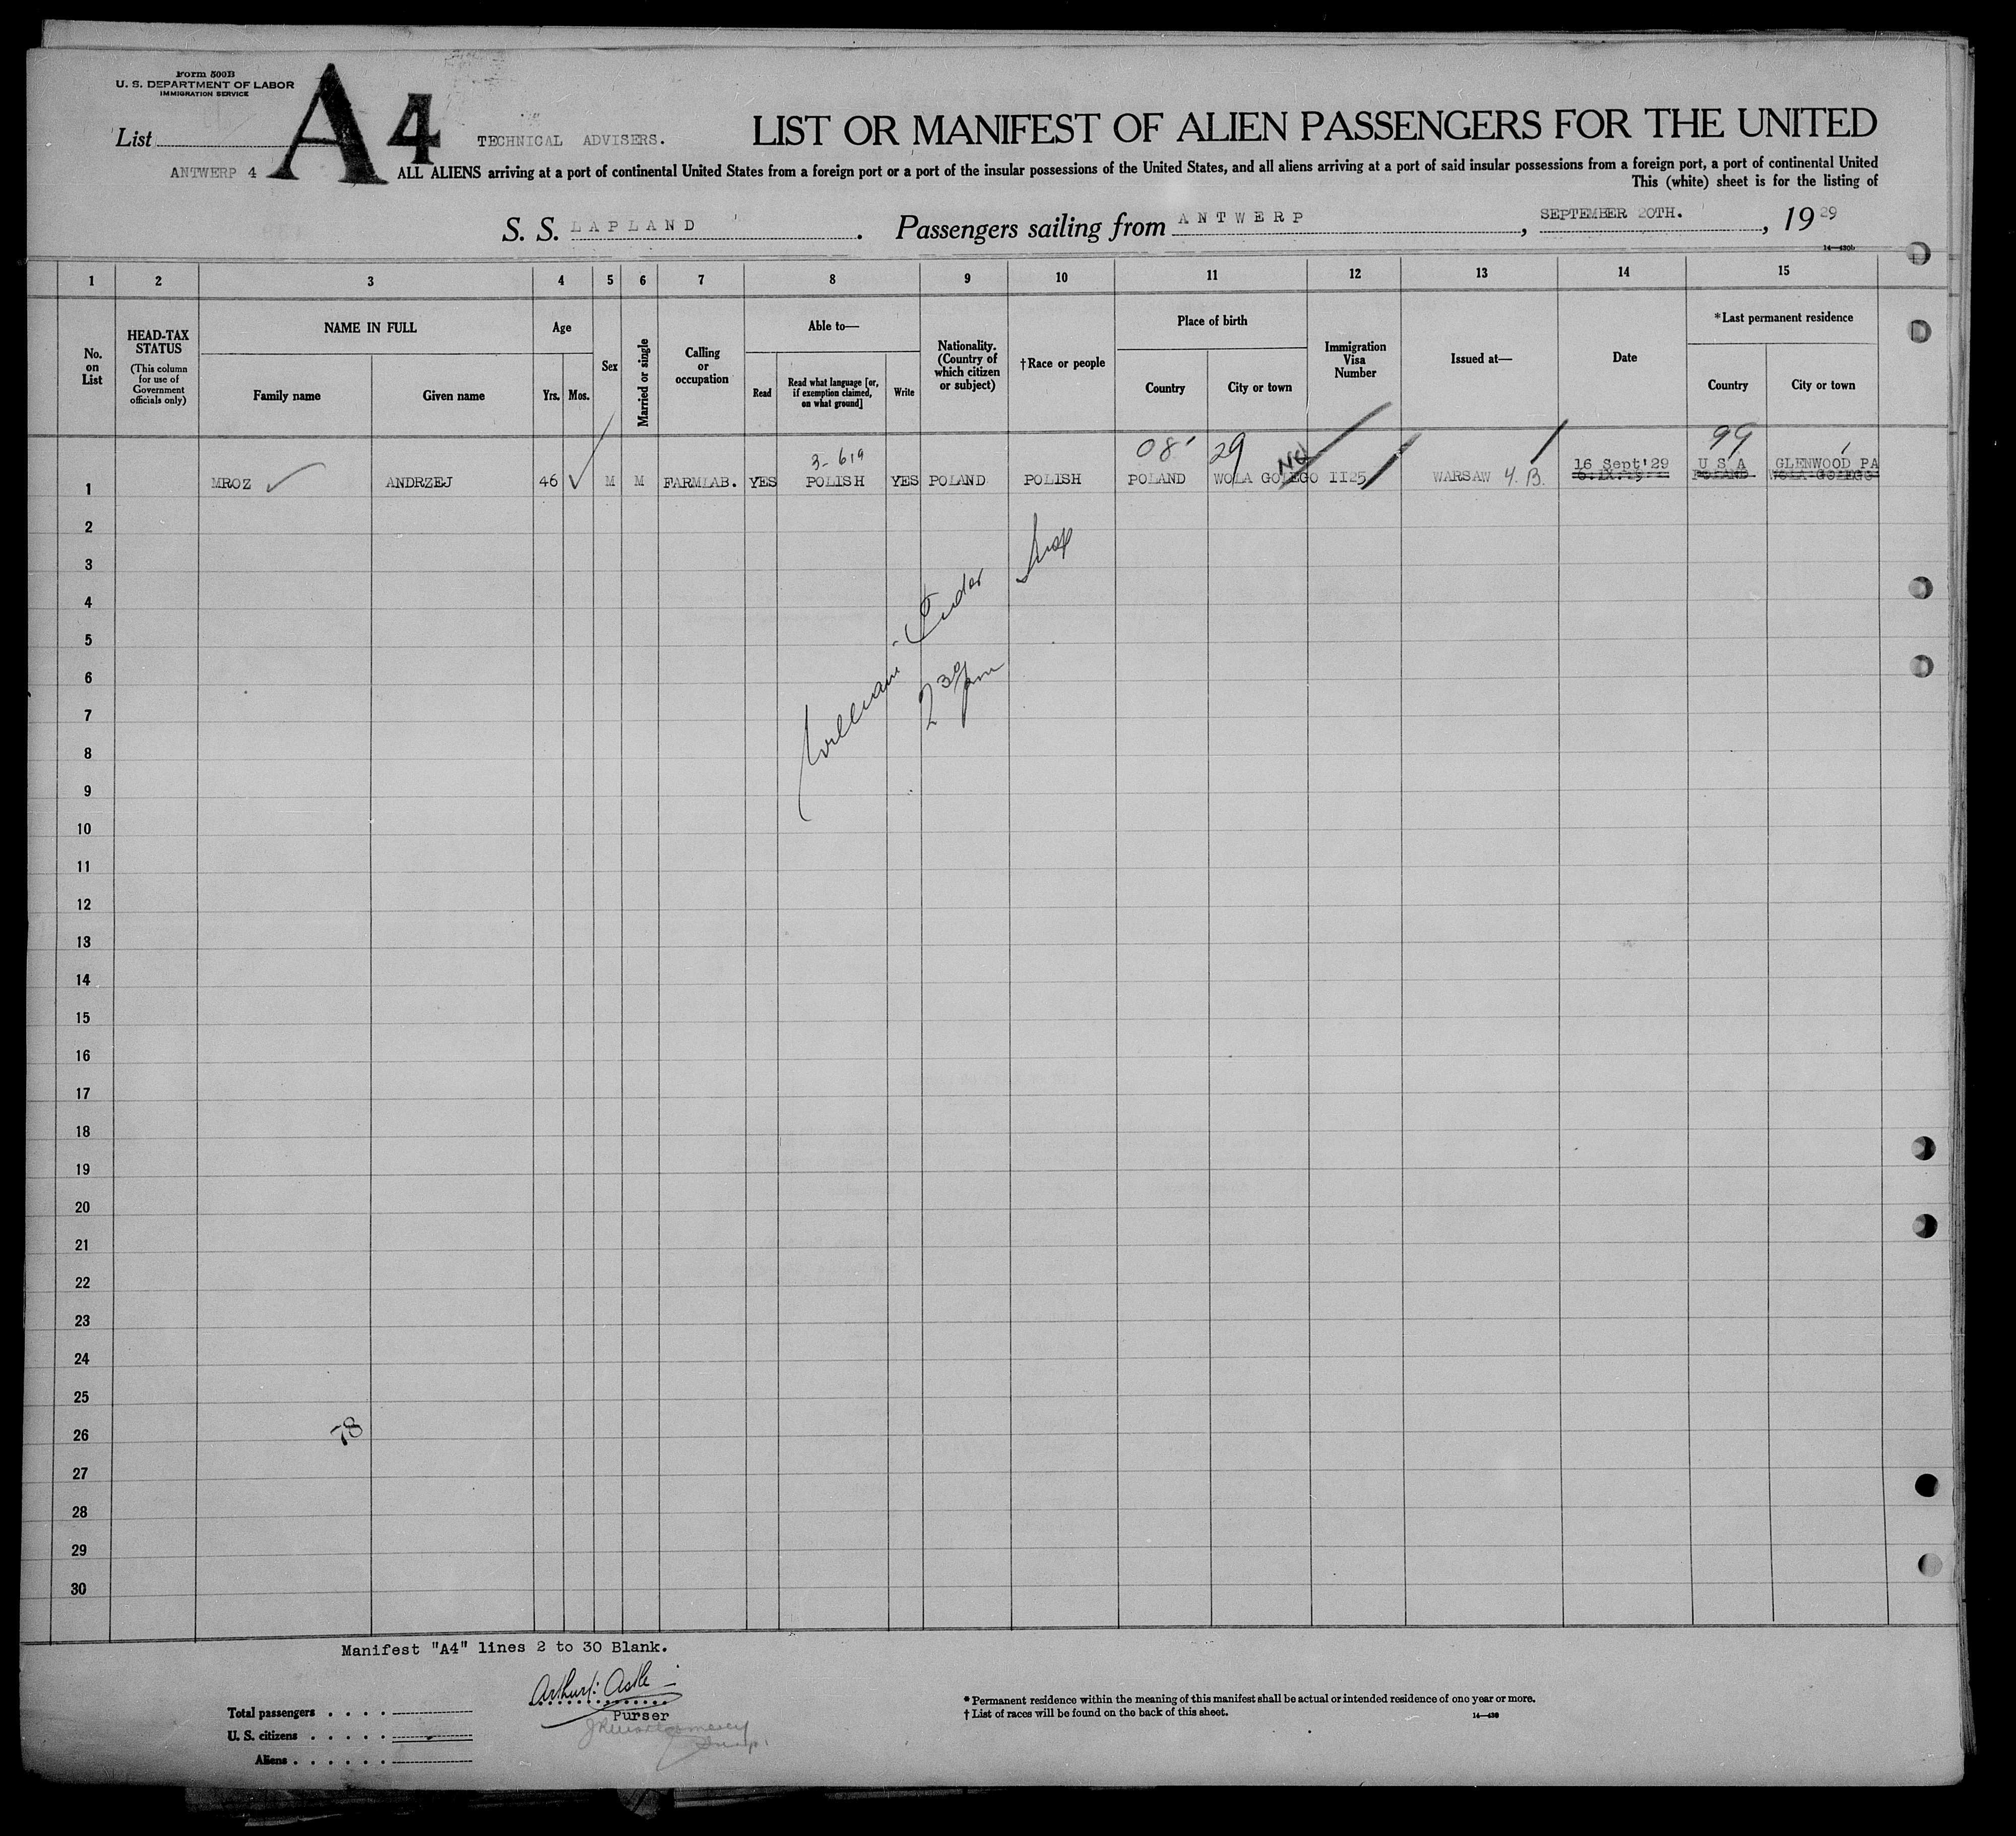 Form 500B
U. S. DEPARTMENT OF LABOR
IMMIGRATION SERVICE
List
A4
ANTWERP 4
TECHNICAL ADVISERS.
LIST OR MANIFEST OF ALIEN PASSENGERS FOR THE UNITED
ALL ALIENS arriving at a port of continental United States from a foreign port or a port of the insular possessions of the United States, and all aliens arriving at a port of said insular possessions from a foreign port, a port of continental United
This (white) sheet is for the listing of
S. S. LAPLAND. Passengers sailing from ANTWERP, SEPTEMBER 20TH., 1929
14—430b
1 2 3 4 5 6 7 8 9 10 11 12 13 14 15
No. on List
HEAD-TAX STATUS
(This column for use of Government officials only)
NAME IN FULL
Family name
Given name
Age
Yrs.
Mos.
Sex
Married or single
Calling or occupation
Able to—
Read
Read what language [or, if exemption claimed, on what ground]
Write
Nationality. (Country of which citizen or subject)
†Race or people
Place of birth
Country
City or town
Immigration Visa Number
Issued at—
Date
*Last permanent residence
Country
City or town
3-619
08
29
NQ
99
16 Sept'29
U S A
GLENWOOD PA
1 MROZ ANDRZEJ 46 M M FARMLAB. YES POLISH YES POLAND POLISH POLAND WOLA GOLEGO 1125 WARSAW 4.B. POLAND WOLA-GOLEGO
2
3
4
5
6
7
8
9
10
11
12
13
14
15
16
17
18
19
20
21
22
23
24
25
26
27
28
29
30
William
2 30 pm
78
Manifest "A4" lines 2 to 30 Blank.
Purser
Total passengers
U. S. citizens
Aliens
* Permanent residence within the meaning of this manifest shall be actual or intended residence of one year or more.
† List of races will be found on the back of this sheet.
14—430